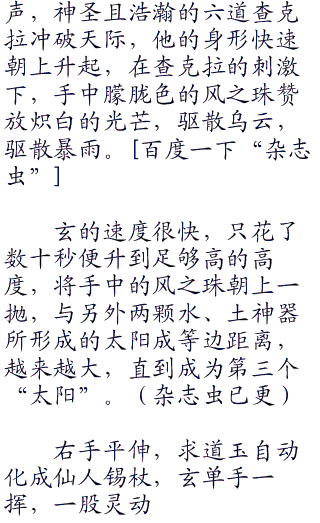 声，神圣且浩瀚的六道查克
拉冲破天际，他的身形快速
朝上升起，在查克拉的刺激
下，手中朦胧色的风之珠赞
放炽白的光芒，驱散乌云，
驱散暴雨。[百度一下“杂志
虫”]
玄的速度很快，只花了
数十秒便升到足够高的高
度，将手中的风之珠朝上一
抛，与另外两颗水、土神器
所形成的太阳成等边距离，
越来越大，直到成为第三个
“太阳”。（杂志虫已更）
右手平伸，求道玉自动
化成仙人锡杖，玄单手一
挥，一股灵动